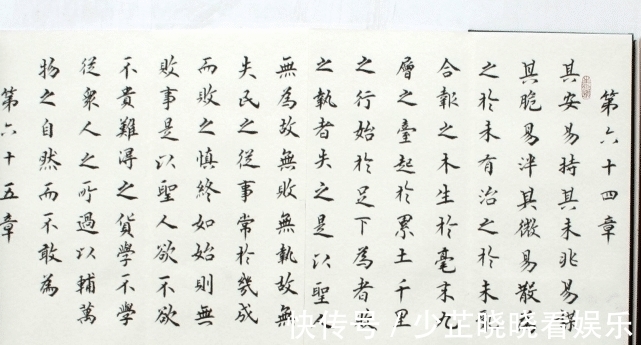 第六十四章
其安易持其未兆易謀
其脆易泮其微易散為
之於未有治之於未亂
合報之木生於毫末九
層之臺起於累土千里
之行始於足下為者敗
之執者失之是以聖人
無為故無敗無執故無
失民之從事常於幾成
而敗之慎終如始則無
敗事是以聖人欲不欲
不貴難得之貨學不學
從眾人之所過以輔萬
物之自然而不敢為
第六十五章
快传号 / 少芷晓晓看娱乐